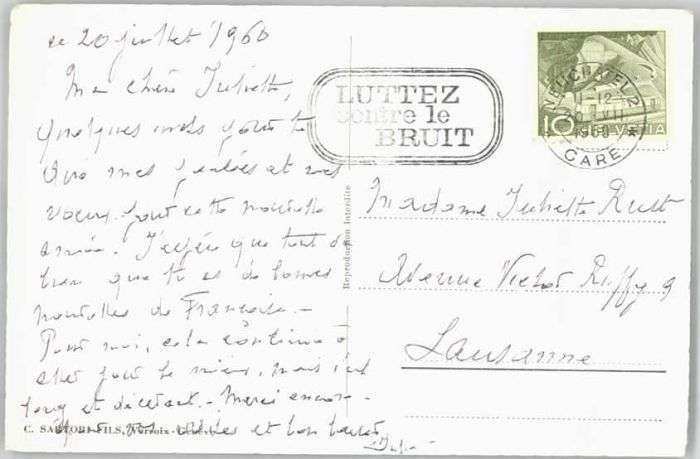 ce 20 juillet 1960
Ma chère Juliette,
Quelques mots pour te
dire mes pensées et mes
voeux pour cette nouvelle
année. J'espère que tout va
bien que tu as de bonnes
nouvelles de
Pour moi, cela continue à
aller pour le mieux, mais c'est
long et décevant. - Merci encore
et bon baiser
C. SARTORI-FILS, Versoix-Genève
Reproduction interdite
LUTTEZ
contre le
BRUIT
NEUCHATEL 2
11-12
20.VII
1960
GARE
10 HELVETIA
Madame Juliette
Avenue Victor Ruffy 9
Lausanne